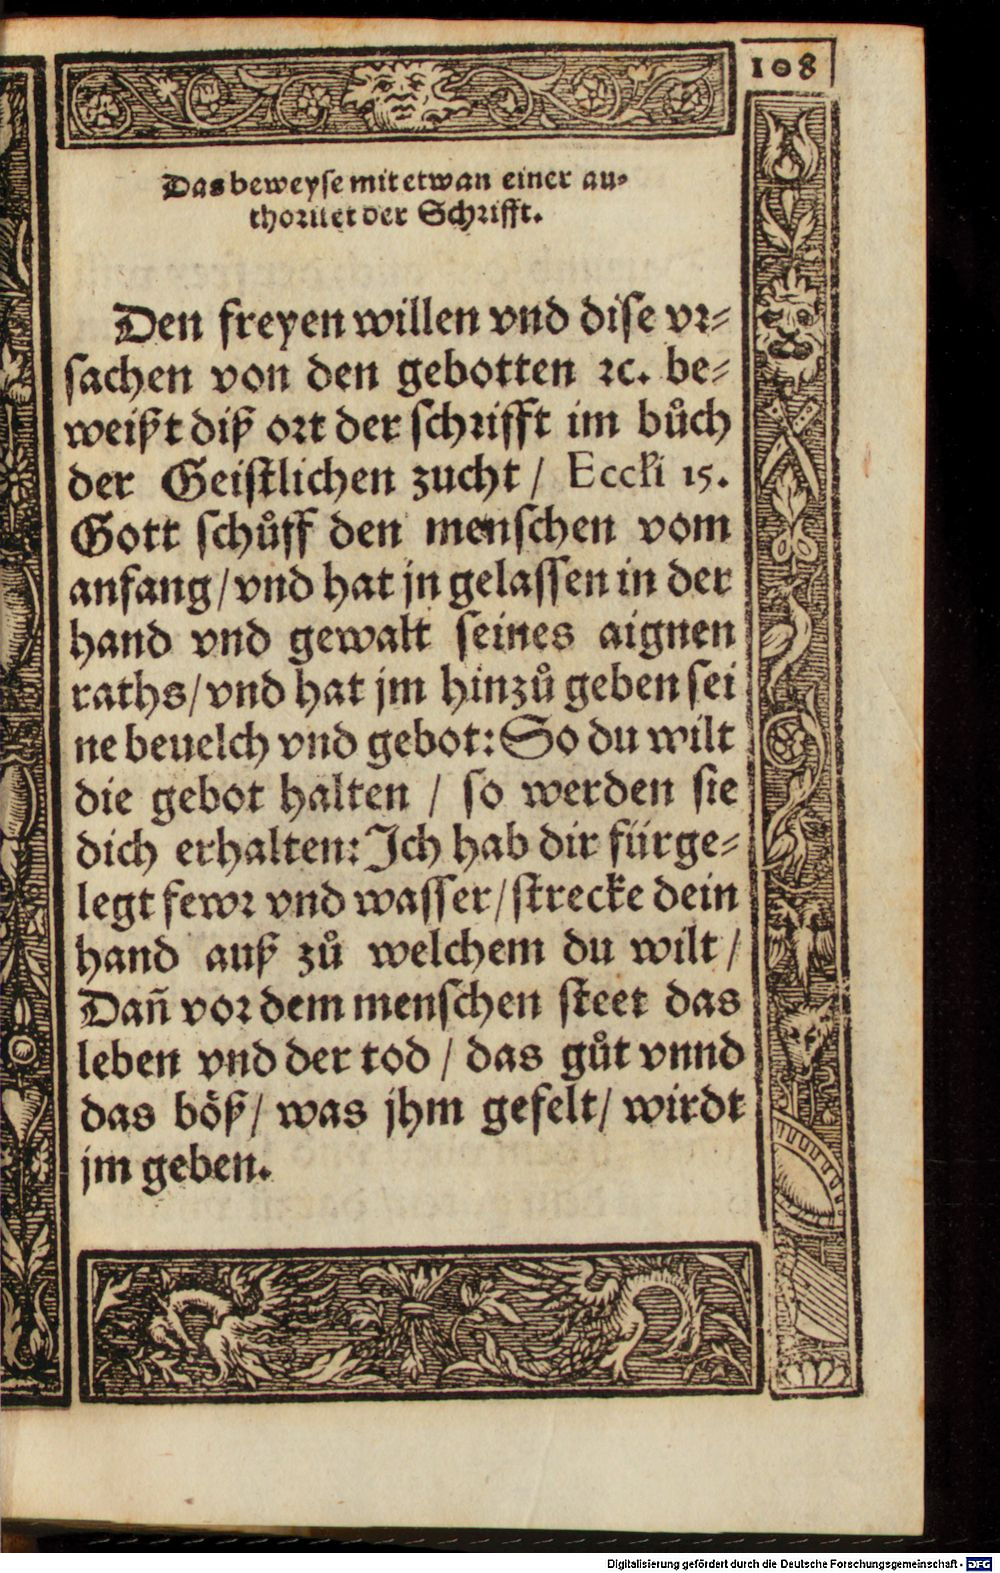 108
Das beweyse mit etwan einer au⸗
thoritet der Schrifft.
Den freyen willen vnd dise vr⸗
sachen von den gebotten ꝛc. be⸗
weißt diß ort der schrifft im bůch
der Geistlichen zucht / Eccli 15.
Gott schůff den menschen vom
anfang / vnd hat jn gelassen in der
hand vnd gewalt seines aignen
raths / vnd hat jm hinzů geben sei
ne beuelch vnd gebot: So du wilt
die gebot halten / so werden sie
dich erhalten: Jch hab dir fürge⸗
legt fewr vnd wasser / strecke dein
hand auß zů welchem du wilt /
Dañ vor dem menschen steet das
leben vnd der tod / das gůt vnnd
das böß / was jhm gefelt / wirdt
jm geben.
Digitalisierung gefördert durch die Deutsche Forschungsgemeinschaft - DFG